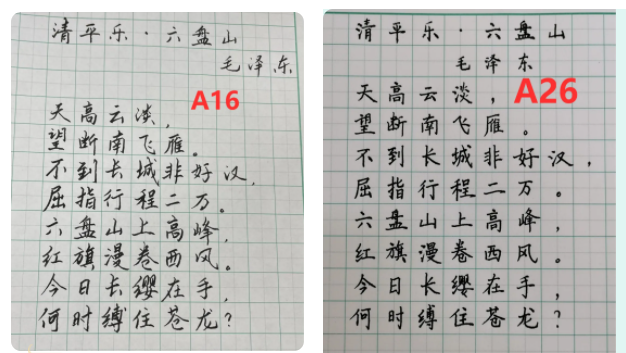 清平乐·六盘山
毛泽东
A16
天高云淡，
望断南飞雁。
不到长城非好汉，
屈指行程二万。
六盘山上高峰，
红旗漫卷西风。
今日长缨在手，
何时缚住苍龙？
清平乐·六盘山
毛泽东
A26
天高云淡，
望断南飞雁。
不到长城非好汉，
屈指行程二万。
六盘山上高峰，
红旗漫卷西风。
今日长缨在手，
何时缚住苍龙？